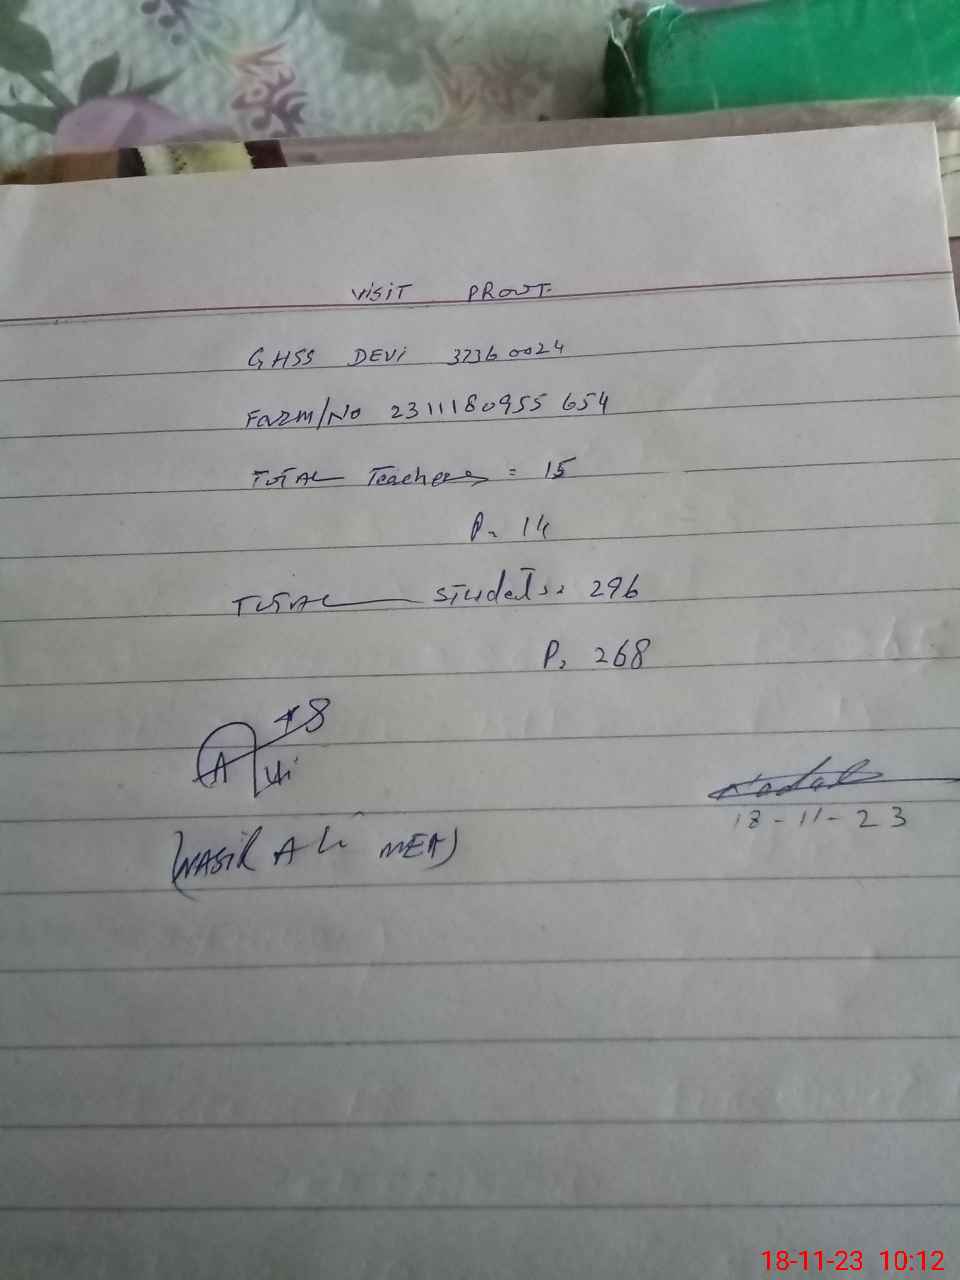 VISIT PROUT.
GHSS DEVI 37360024
Form/No 2311180955654
TOTAL Teachers = 15
P= 14
TOTAL Students= 296
P= 268
(NASIR ALi MEA)
18-11-23
18-11-23 10:12